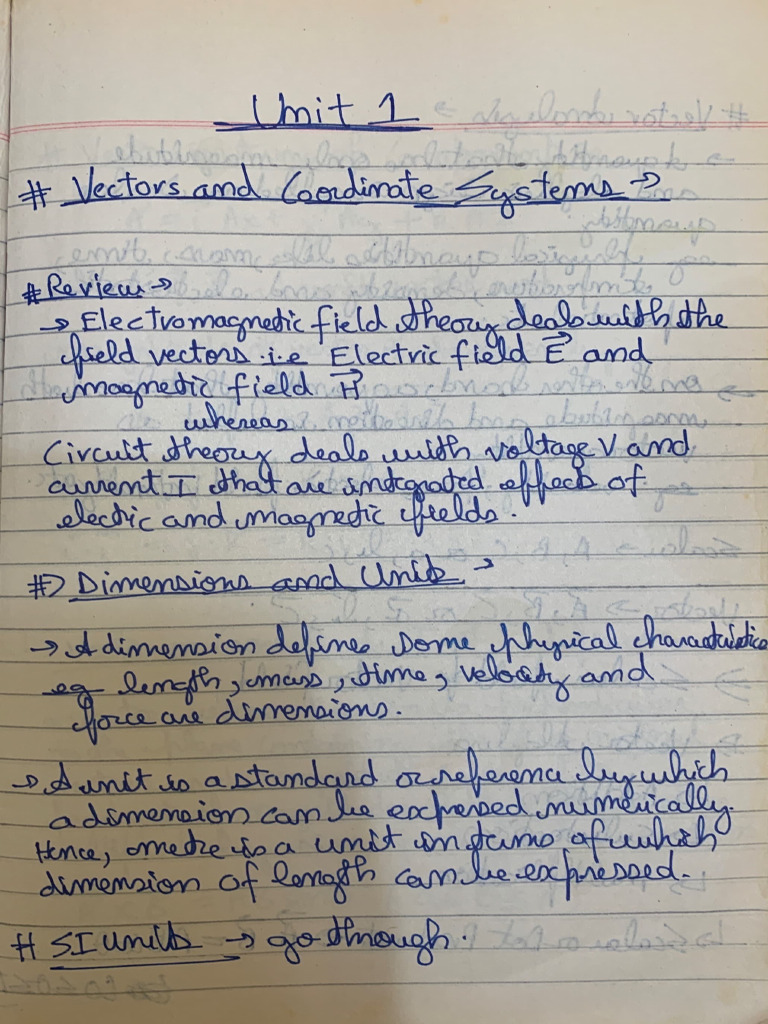 Unit 1
# Vectors and Coordinate Systems →
# Review →
→ Electromagnetic field theory deals with the
field vectors i.e Electric field E⃗ and
magnetic field H⃗
whereas
Circuit theory deals with voltage V and
current I that are integrated effects of
electric and magnetic fields.
#) Dimensions and Units →
→ A dimension defines some physical characteristics
eg length, mass, time, velocity and
force are dimensions.
→ A unit is a standard or reference by which
a dimension can be expressed numerically.
Hence, metre is a unit in terms of which
dimension of length can be expressed.
# SI units → go through.